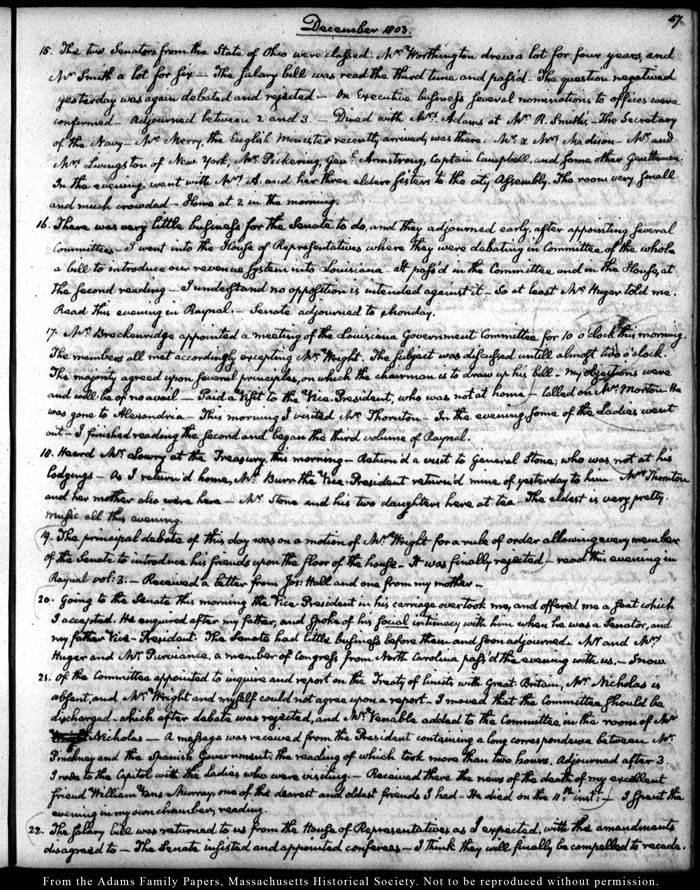 57.
December 1803.
15. The two Senators from the State of Ohio were classed. Mr. Worthington drew a lot for four years, and
Mr. Smith a lot for six — The Salary bill was read the third time and pass'd. The question negatived
yesterday was again debated and rejected — On Executive business several nominations to offices were
confirmed — Adjourned between 2 and 3 — Dined with Mrs. Adams at Mr. R. Smith's — The Secretary
of the Navy — Mr. Merry, the English Minister recently arrived, was there. Mr. & Mrs. Madison — Mr. and
Mrs. Livingston of New York, Mr. Pickering, Genl. Armstrong, Captain Campbell, and some other Gentlemen.
In the evening went with Mrs. A. and her three elder Sisters to the city Assembly. The room very small
and much crowded — Home at 2 in the morning.
16. There was very little business for the Senate to do, and they adjourned early, after appointing several
Committees — I went into the House of Representatives where they were debating in Committee of the whole
a bill to introduce our revenue System into Louisiana — It pass'd in the Committee and in the House, at
the second reading — I understand no opposition is intended against it — So at least Mr. Huger told me.
Read this evening in Raynal — Senate adjourned to Monday.
17. Mr. Breckenridge appointed a meeting of the Louisiana Government Committee for 10 o'clock this morning.
The members all met accordingly excepting Mr. Wright. The subject was discussed untill almost two o'clock.
The majority agreed upon several principles, on which the chairman is to draw up his bill — my objections were
and will be of no avail — Paid a visit to the Vice-President, who was not at home — called on Mr. Morton. He
was gone to Alexandria — This morning I visited Mr. Thornton — In the evening some of the Ladies went
out — I finished reading the second and began the third volume of Raynal.
18. Heard Mr. Lowry at the Treasury, this morning — Return'd a visit to General Stone, who was not at his
lodgings — As I return'd home, Mr. Burr the Vice-President return'd mine of yesterday to him. Mrs. Thornton
and her mother also were here — Mr. Stone and his two daughters here at tea — The eldest is very pretty.
Music all this evening.
19. The principal debate of this day was on a motion of Mr. Wright for a rule of order allowing every member
of the Senate to introduce his friends upon the floor of the house — It was finally rejected — read this evening in
Raynal vol: 3. — Received a letter from Jos: Hall and one from my mother —
20. Going to the Senate this morning the Vice-President in his carriage overtook me, and offered me a seat which
I accepted. He enquired after my father, and spoke of his social intimacy with him when he was a Senator, and
my father Vice-President. The Senate had little business before them and soon adjourned. Mr. and Mrs.
Huger and Mr. Purviance, a member of Congress from North Carolina pass'd the evening with us, — Snow
21. Of the Committee appointed to inquire and report on the Treaty of limits with Great Britain, Mr. Nicholas is
absent, and Mr. Wright and myself could not agree upon a report — I moved that the Committee should be
discharged — which after debate was rejected, and Mr. Venable added to the Committee in the room of Mr.
Nicholas — A message was received from the President containing a long correspondence between Mr.
Pinckney and the Spanish Government; the reading of which took more than two hours. Adjourned after 3.
I rode to the Capitol with the Ladies who were visiting. — Received there the news of the death of my excellent
friend William Vans Murray, one of the dearest and oldest friends I had — He died on the 11th. inst: — I spent the
evening in my own chamber, reading.
22. The salary bill was returned to us from the House of Representatives as I expected, with the amendments
disagreed to — The Senate insisted and appointed conferees — I think they will finally be compelled to recede.
From the Adams Family Papers, Massachusetts Historical Society. Not to be reproduced without permission.